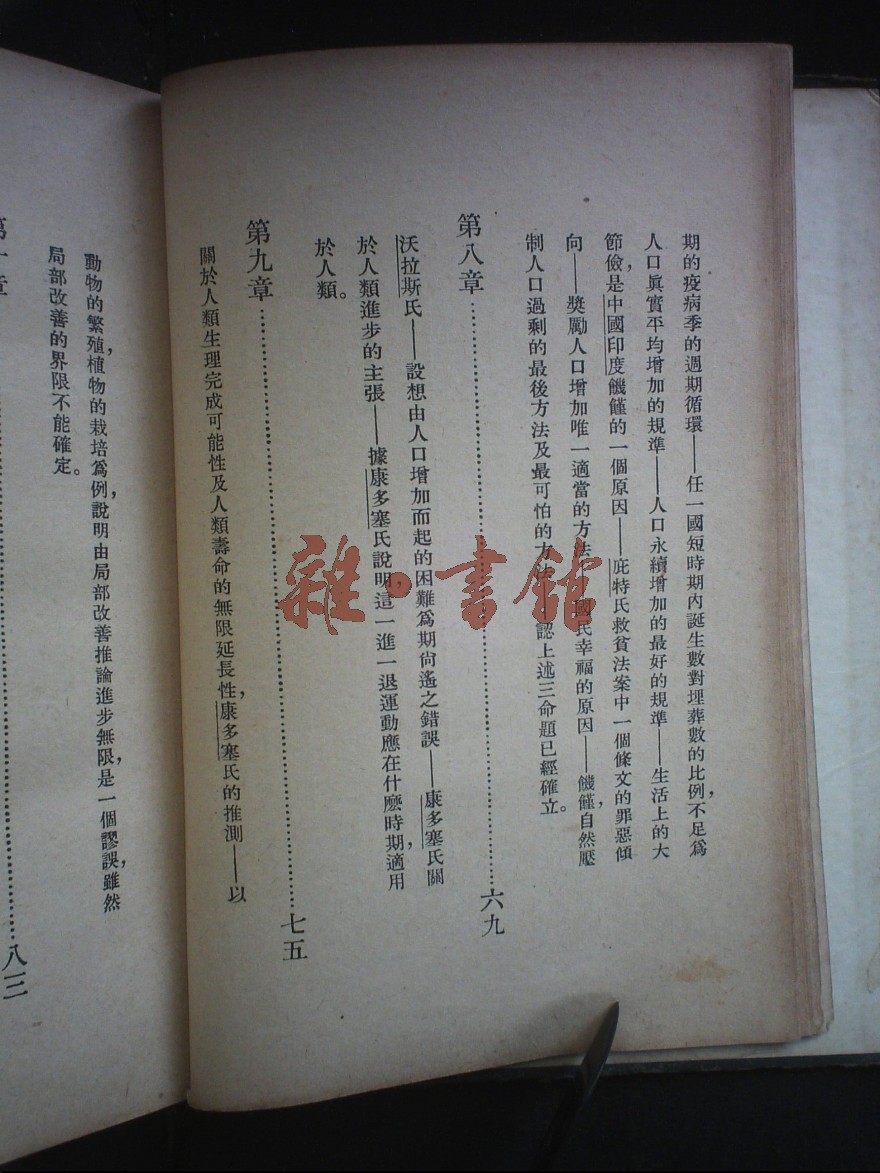 期的疫病季的週期循環——任一國短時期內誕生數對埋葬數的比例，不足爲
人口眞實平均增加的規準——人口永續增加的最好的規準——生活上的大
節儉，是中國印度饑饉的一個原因——庇特氏救貧法案中一個條文的罪惡傾
向——獎勵人口增加唯一適當的方法——國民幸福的原因——饑饉，自然壓
制人口過剩的最後方法及最可怕的方法 認上述三命題已經確立。
第八章……六九
沃拉斯氏——設想由人口增加而起的困難爲期尙遙之錯誤——康多塞氏關
於人類進步的主張——據康多塞氏說明，這一進一退運動應在什麼時期，適用
於人類。
第九章……七五
關於人類生理完成可能性及人類壽命的無限延長性，康多塞氏的推測——以
動物的繁殖，植物的栽培爲例，說明由局部改善推論進步無限，是一個謬誤，雖然
局部改善的界限不能確定。
第十章……八三
雜·書館